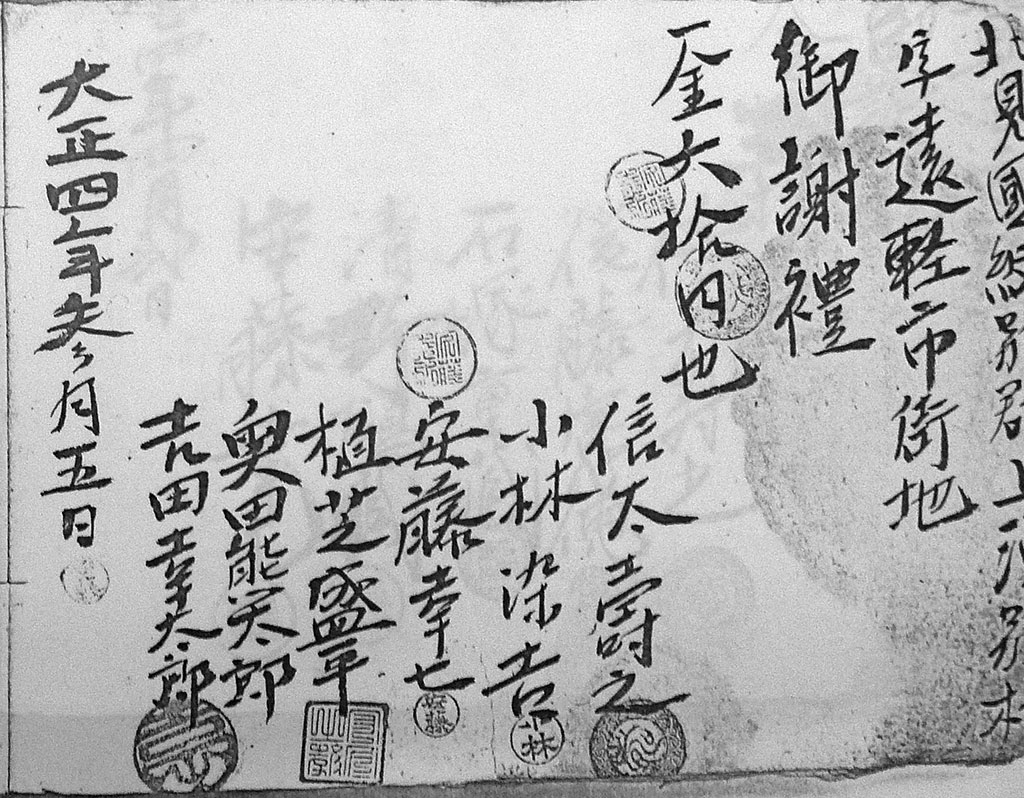 北見國紋別郡上湧別村
字遠軽市街地
御謝禮
一金六拾円也
信太壽之
小林染吉
安藤幸七
植芝盛平
奥田熊太郎
吉田幸太郎
大正四年参月五日
小林
安藤